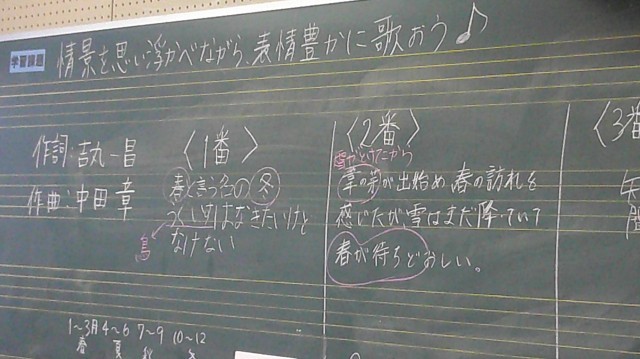 学習課題
情景を思い浮かべながら、表情豊かに歌おう♪
作詞:吉丸一昌
作曲:中田章
〈1番〉
春と言う名の冬
うぐいすはなきたいけど
なけない
鳥
〈2番〉
雪がとけたから
葦の芽が出始め春の訪れを
感じたが雪はまだ降っていて
春が待ちどおしい。
〈3番
1〜3月 4〜6 7〜9 10〜12
春 夏